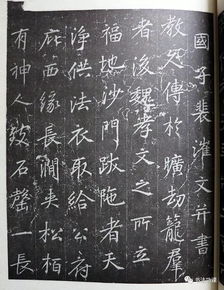 國子裴漼文并書
教傳於曠劫籠群
者後魏孝文之所立
福地沙門跋陁者天
淨供法衣取給公府
庇西緣長澗夾松栢
有神人致石磬一長